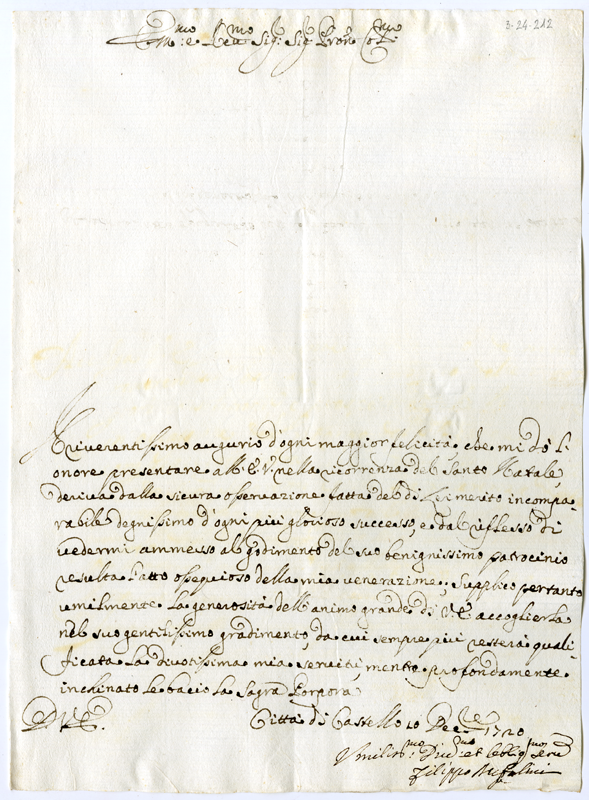 3-24-212
Em:mo e Re:mo Sig: Sig: Pron: Col:mo
Il riverentissimo augurio d'ogni maggior felicità, che mi dò l'
onore presentare all'E.V. nella ricorrenza del Santo Natale,
deriva dalla sicura osservazione fatta del di Lei merito incompa-
rabile degnissimo d'ogni più glorioso successo, e dal riflesso di
vedermi ammesso al godimento del suo benignissimo patrocinio
resulta l'atto ossequioso della mia venerazione; Supplico pertanto
umilmente la generosità dell'animo grande di V.E. accoglierla
nel suo gentilissimo gradimento, da cui sempre più resterà quali-
ficata la divotissima mia servitù, mentre profondamente
inchinato le bacio la Sagra Porpora
D.V.E.
Città di Castello 10 Dec:re 1720
Umiliss:mo Div:mo et obblig:mo Serv:
Filippo Bufalini